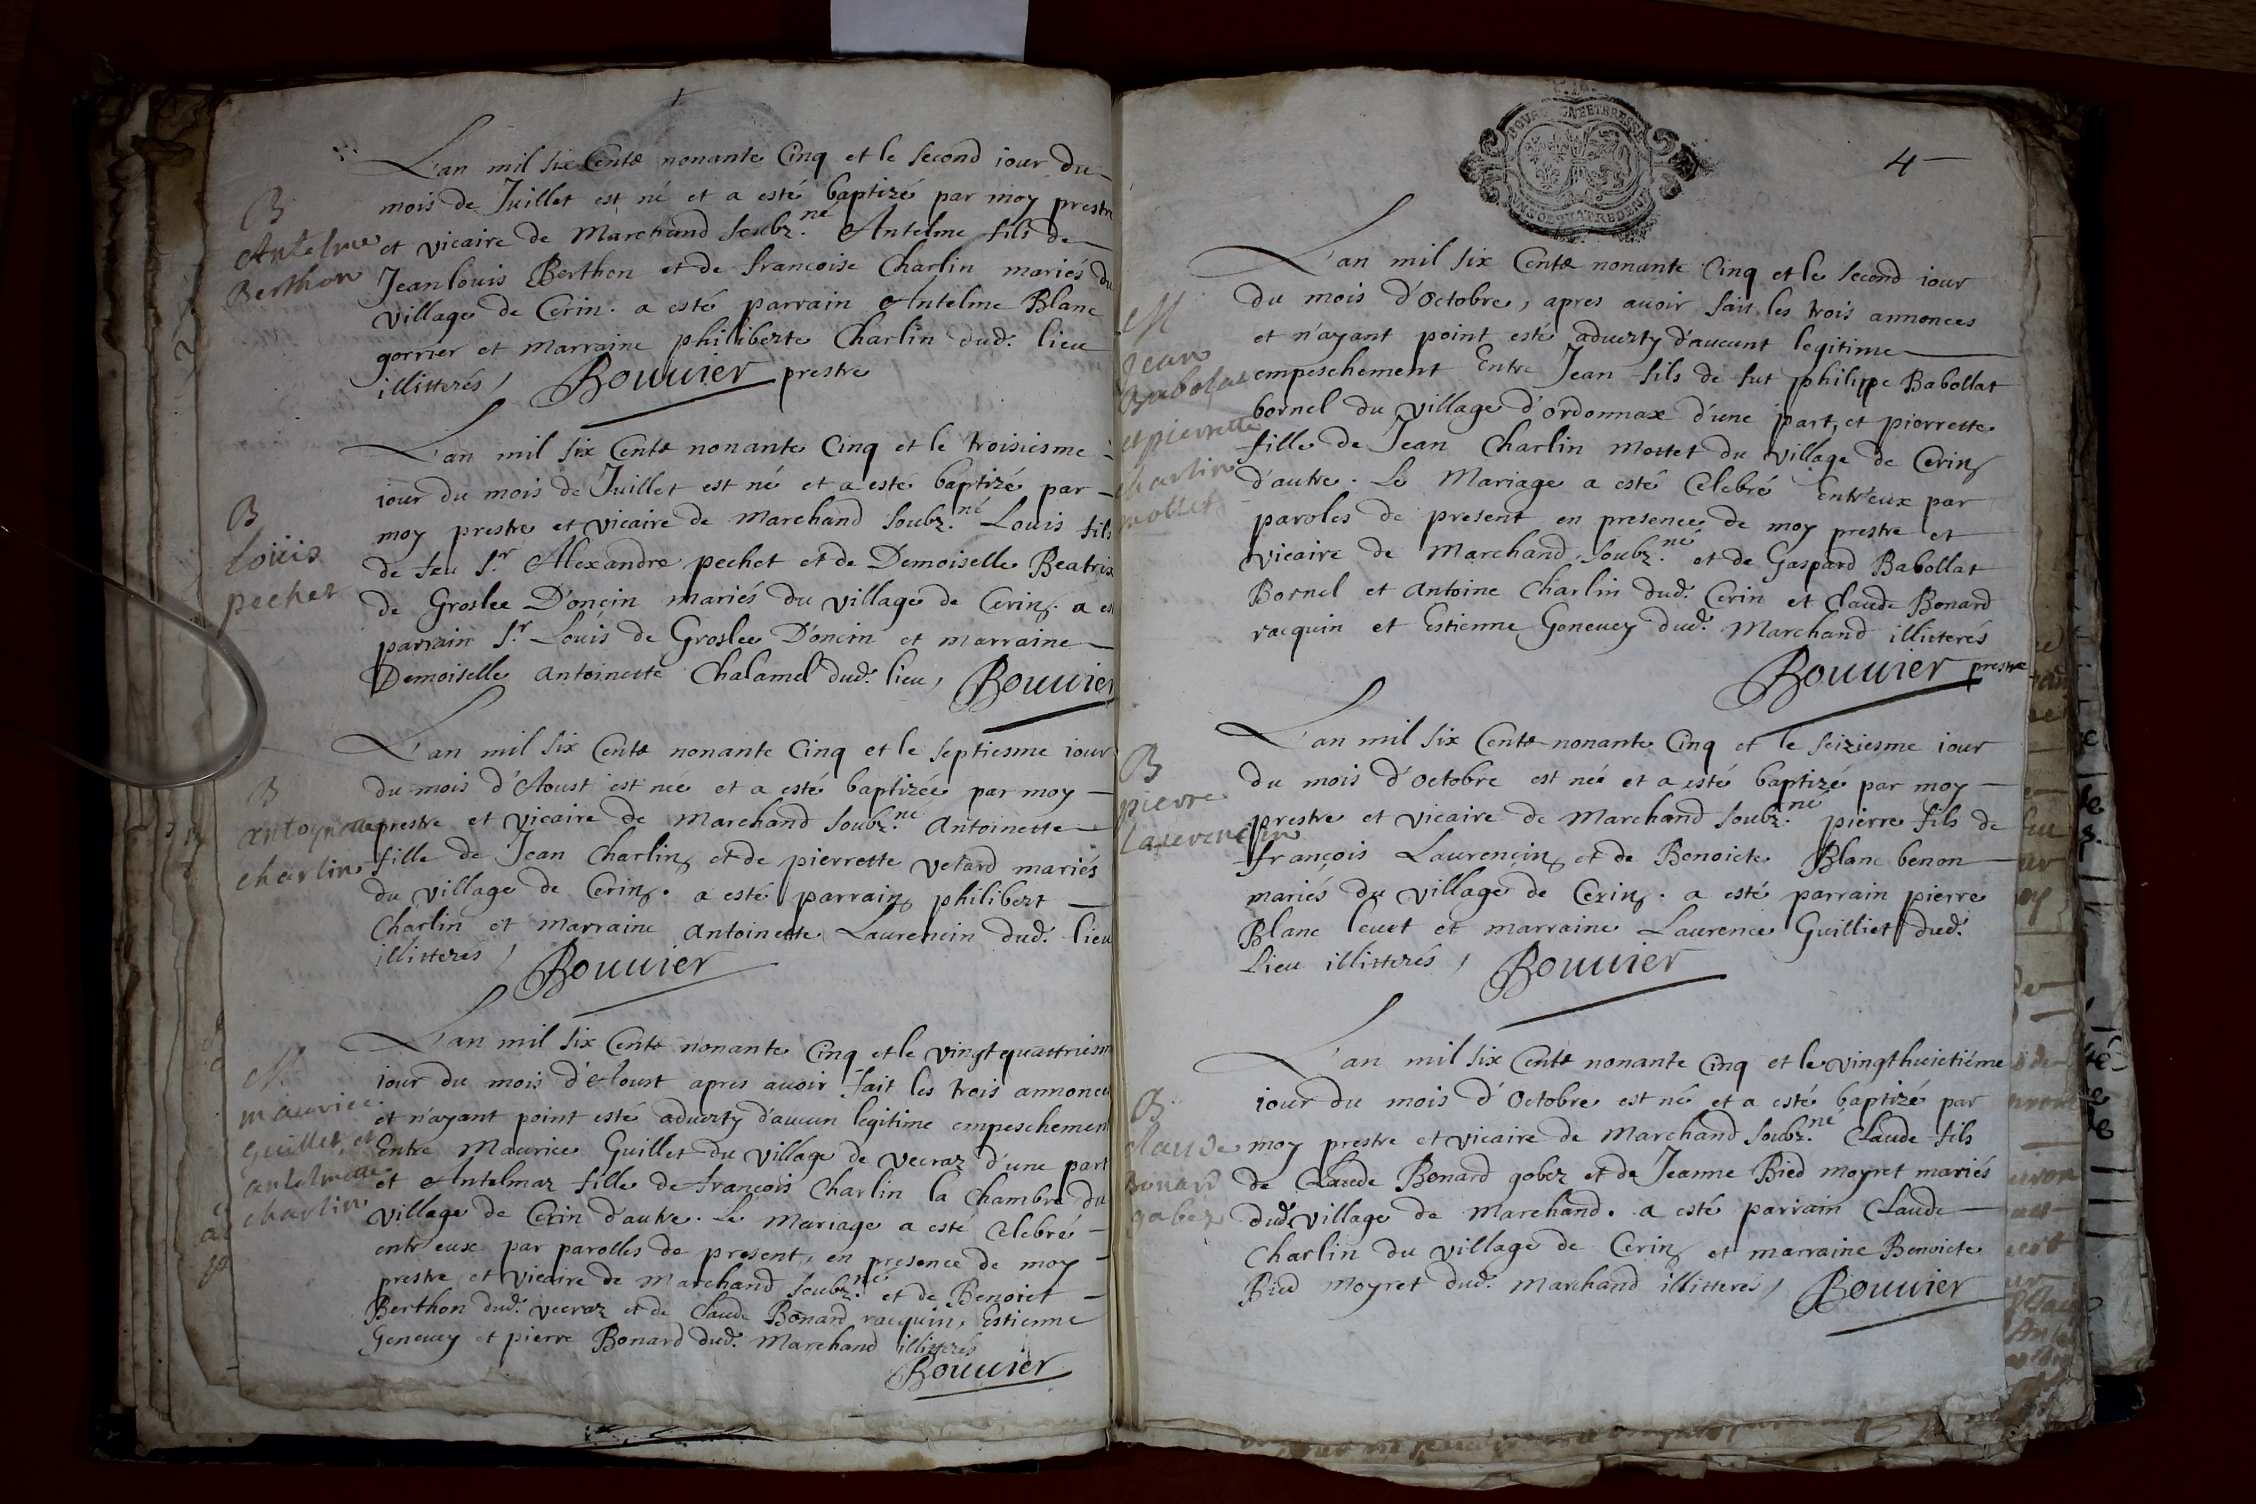 L'an mil six Cents nonante Cinq et le second iour du
mois de Juillet est né et a esté baptizé par moy prestre
B
Antelme
Berthon
et vicaire de Marchand soubz.né Antelme fils de
Jean louis Berthon et de francoise Charlin mariés du
village de Cerin. a esté parrain Antelme Blanc
gorrier et Marraine philiberte Charlin dud. lieu
illitterés / Bouuier prestre
L'an mil six Cents nonante Cinq et le troisiesme
iour du mois de Juillet est né et a esté baptizé par
B
loüis
pechet
moy prestre et vicaire de Marchand soubz.né Louis fils
de feu Sr. Alexandre pechet et de Demoiselle Beatrix
de Groslee D'oncin mariés du village de Cerin. a es
parrain Sr. Louis de Groslee D'oncin et marraine
Demoiselle antoinette Chalamel dud. lieu, Bouuier
L'an mil six Cents nonante Cinq et le septiesme iour
du mois d'Aoust est née et a esté baptizée par moy
B
antoynette
charlin
prestre et vicaire de Marchand soubz.né Antoinette
fille de Jean Charlin et de pierrette vetard mariés
du village de Cerin. a esté parrain philibert
Charlin et Marraine Antoinette Laurencin dud. lieu
illitterés / Bouuier
L'an mil six Cents nonante Cinq et le vingtquattriesm
iour du mois d'Aoust apres auoir fait les trois annonces
M
maurice
guillet et
antelmette
charlin
et n'ayant point esté aduerty d'aucun legitime empeschement
Entre Maurice Guillet du village de vecraz d'une part
et Antelmaz fille de françois Charlin la Chambre du
village de Cerin d'autre. Le Mariage a esté Celebré
entr'eux par parolles de present, en presence de moy
prestre et vicaire de Marchand soubz.né et de Benoict
Berthon dud. vecraz et de Claude Bonard racquin, Estienne
Geneuey et pierre Bonard dud. Marchand illitterés
Bouuier
4
L'an mil six Cents nonante Cinq et le second iour
du mois d'Octobre, apres auoir fait les trois annonces
et n'ayant point esté aduerty d'aucunt legitime
M
Jean
Babolat
et pierrette
charlin
mottet
empeschement Entre Jean fils de fut philippe Babollat
bornel du village d'ordonnax d'une part, et pierrette
fille de Jean Charlin Mottet du village de Cerin
d'autre. Le Mariage a esté Celebré Entr'eux par
paroles de present en presence de moy prestre et
vicaire de Marchand soubz.né et de Gaspard Babollat
Bornel et Antoine Charlin dud. Cerin et Claude Bonard
racquin et Estienne Geneuey dud. Marchand illitterés
Bouuier prestre
L'an mil six Cents nonante Cinq et le seiziesme iour
du mois d'Octobre est né et a esté baptizé par moy
B
pierre
prestre et vicaire de Marchand soubz.né pierre fils de
françois Laurencin et de Benoicte Blanc benon
mariés du village de Cerin. a esté parrain pierre
Blanc leuet et marraine Laurence Guilliet dud.
Lieu illitterés / Bouuier
L'an mil six Cents nonante Cinq et le vingthuictiéme
iour du mois d'Octobre est né et a esté baptizé par
B
claude
Bonard
gobez
moy prestre et vicaire de Marchand soubz.né Claude fils
de Claude Bonard gobez et de Jeanne Bied moyret mariés
dud. village de Marchand. a esté parrain Claude
Charlin du village de Cerin et marraine Benoicte
Bied Moyret dud. Marchand illitterés / Bouuier